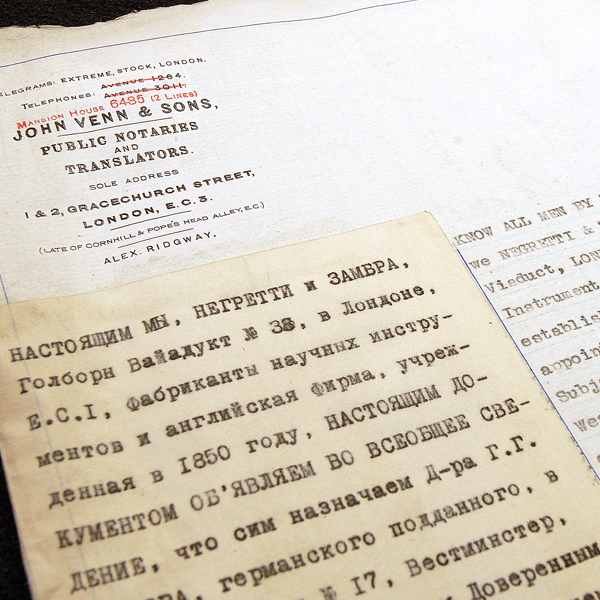 TELEGRAMS: EXTREME, STOCK, LONDON.
TELEPHONES: AVENUE 1264.
AVENUE 3011.
MANSION HOUSE 6485 (2 LINES)
JOHN VENN & SONS,
PUBLIC NOTARIES
AND
TRANSLATORS.
SOLE ADDRESS
1 & 2, GRACECHURCH STREET,
LONDON, E.C.3.
(LATE OF CORNHILL & POPE'S HEAD ALLEY, E.C.)
ALEX. RIDGWAY.
НАСТОЯЩИМ МЫ, НЕГРЕТТИ и ЗАМБРА,
Голборн Вайадукт № 38, в Лондоне,
Е.С.I, Фабриканты научных инстру-
ментов и английская фирма, учреж-
денная в 1850 году, НАСТОЯЩИМ ДО-
КУМЕНТОМ ОБ'ЯВЛЯЕМ ВО ВСЕОБЩЕЕ СВЕ-
ДЕНИЕ, что сим назначаем Д-ра Г.Г.
германского подданного, в
№ 17, Вестминстер,
Доверенным
KNOW ALL MEN BY
we NEGRETTI &
Viaduct, LON
Instrument
establis
appoin
Subj
Wes